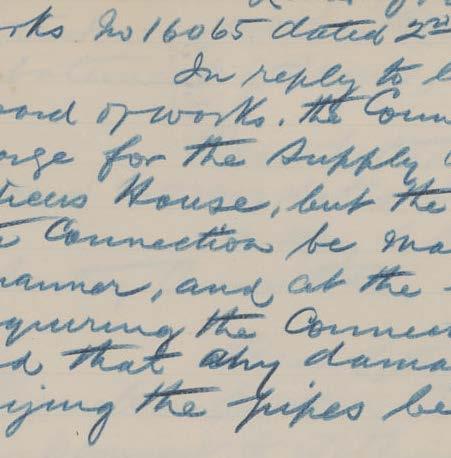 orks No 16065 dated 2nd
In reply to
oard of works. the Coun
orge for the Supply
ticers House, but the
Connection be ma
anner, and at the
quiring the Connec
d that any dama
ijing the pipes be